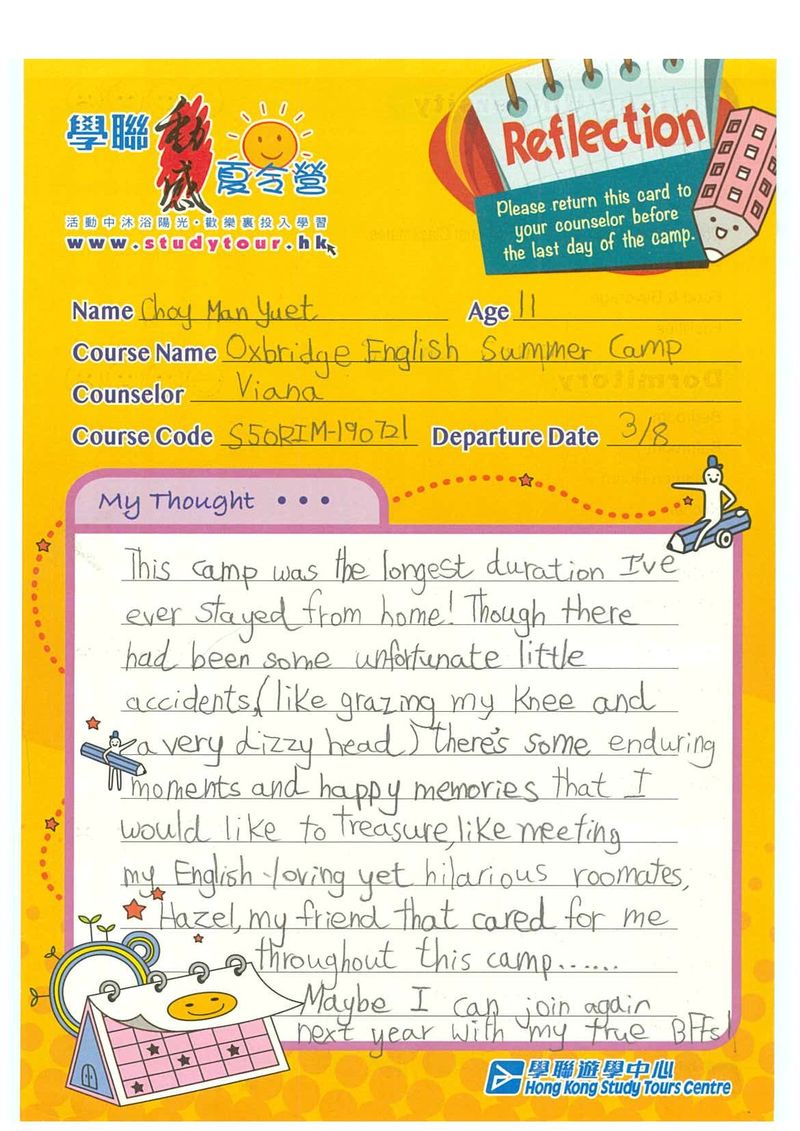 學聯動感夏令營
活動中沐浴陽光・歡樂裏投入學習
www.studytour.hk
Reflection
Please return this card to
your counselor before
the last day of the camp.
Name Choy Man Yuet Age 11
Course Name Oxbridge English Summer Camp
Counselor Viana
Course Code S50RIM-190721 Departure Date 3/8
My Thought • • •
This camp was the longest duration I've
ever stayed from home! Though there
had been some unfortunate little
accidents, (like grazing my knee and
a very dizzy head) there's some enduring
moments and happy memories that I
would like to treasure, like meeting
my English-loving yet hilarious roomates,
Hazel, my friend that cared for me
throughout this camp.......
Maybe I can join again
next year with my true BFFs!
學聯遊學中心
Hong Kong Study Tours Centre